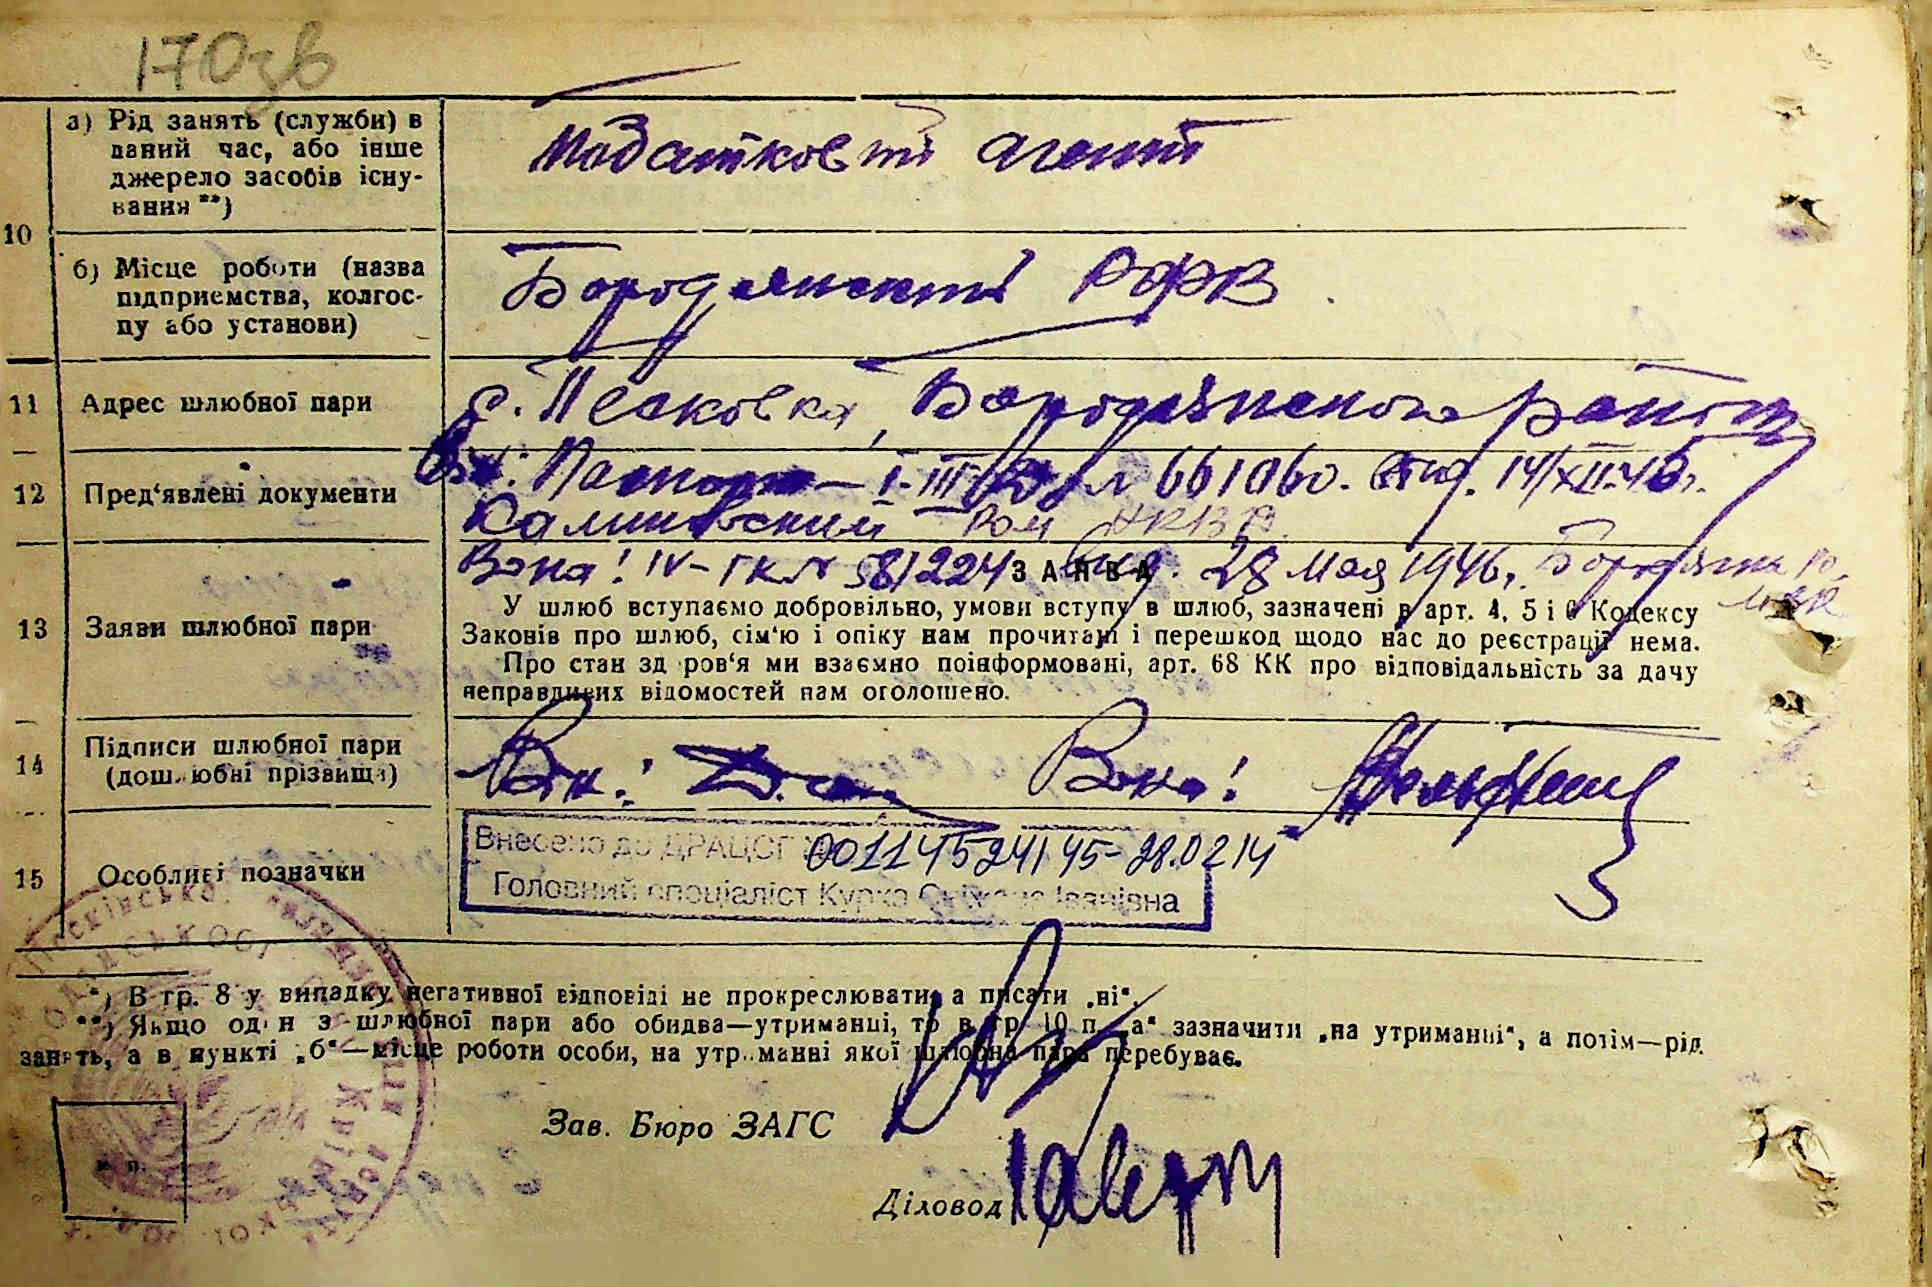 170зв
10
а) Рід занять (служби) в
даний час, або інше
джерело засобів існу-
вання **)
Податковий агент
б) Місце роботи (назва
підприємства, колгос-
пу або установи)
Бородянский РФВ
11
Адрес шлюбної пари
с. Песковка, Бородянського району
12
Пред‘явлені документи
Він: Паспорт — I-III № 661060. 14/XII-46г.
13
Заяви шлюбної пари
Вона! IV-ГК № 581224 вид. 28 мая 1946г.
ЗАЯВА
У шлюб вступаємо добровільно, умови вступу в шлюб, зазначені в арт. 4, 5 і 6 Кодексу
Законів про шлюб, сім‘ю і опіку нам прочитані і перешкод щодо нас до реєстрації нема.
Про стан здоров‘я ми взаємно поінформовані, арт. 68 КК про відповідальність за дачу
неправдивих відомостей нам оголошено.
14
Підписи шлюбної пари
(дошлюбні прізвища)
Він: Вона!
15
Особливі позначки
Внесено до ДРАЦСГ 00114524145-28.0214
Головний спеціаліст Курко Сніжана Іванівна
*) В гр. 8 у випадку негативної відповіді не прокреслювати, а писати „ні“.
**) Якщо один з шлюбної пари або обидва—утриманці, то в гр. 10 п. „а“ зазначити „на утриманні“, а потім—рід
занять, а в пункті „б“—місце роботи особи, на утриманні якої шлюбна пара перебуває.
м. п.
Зав. Бюро ЗАГС
Діловод